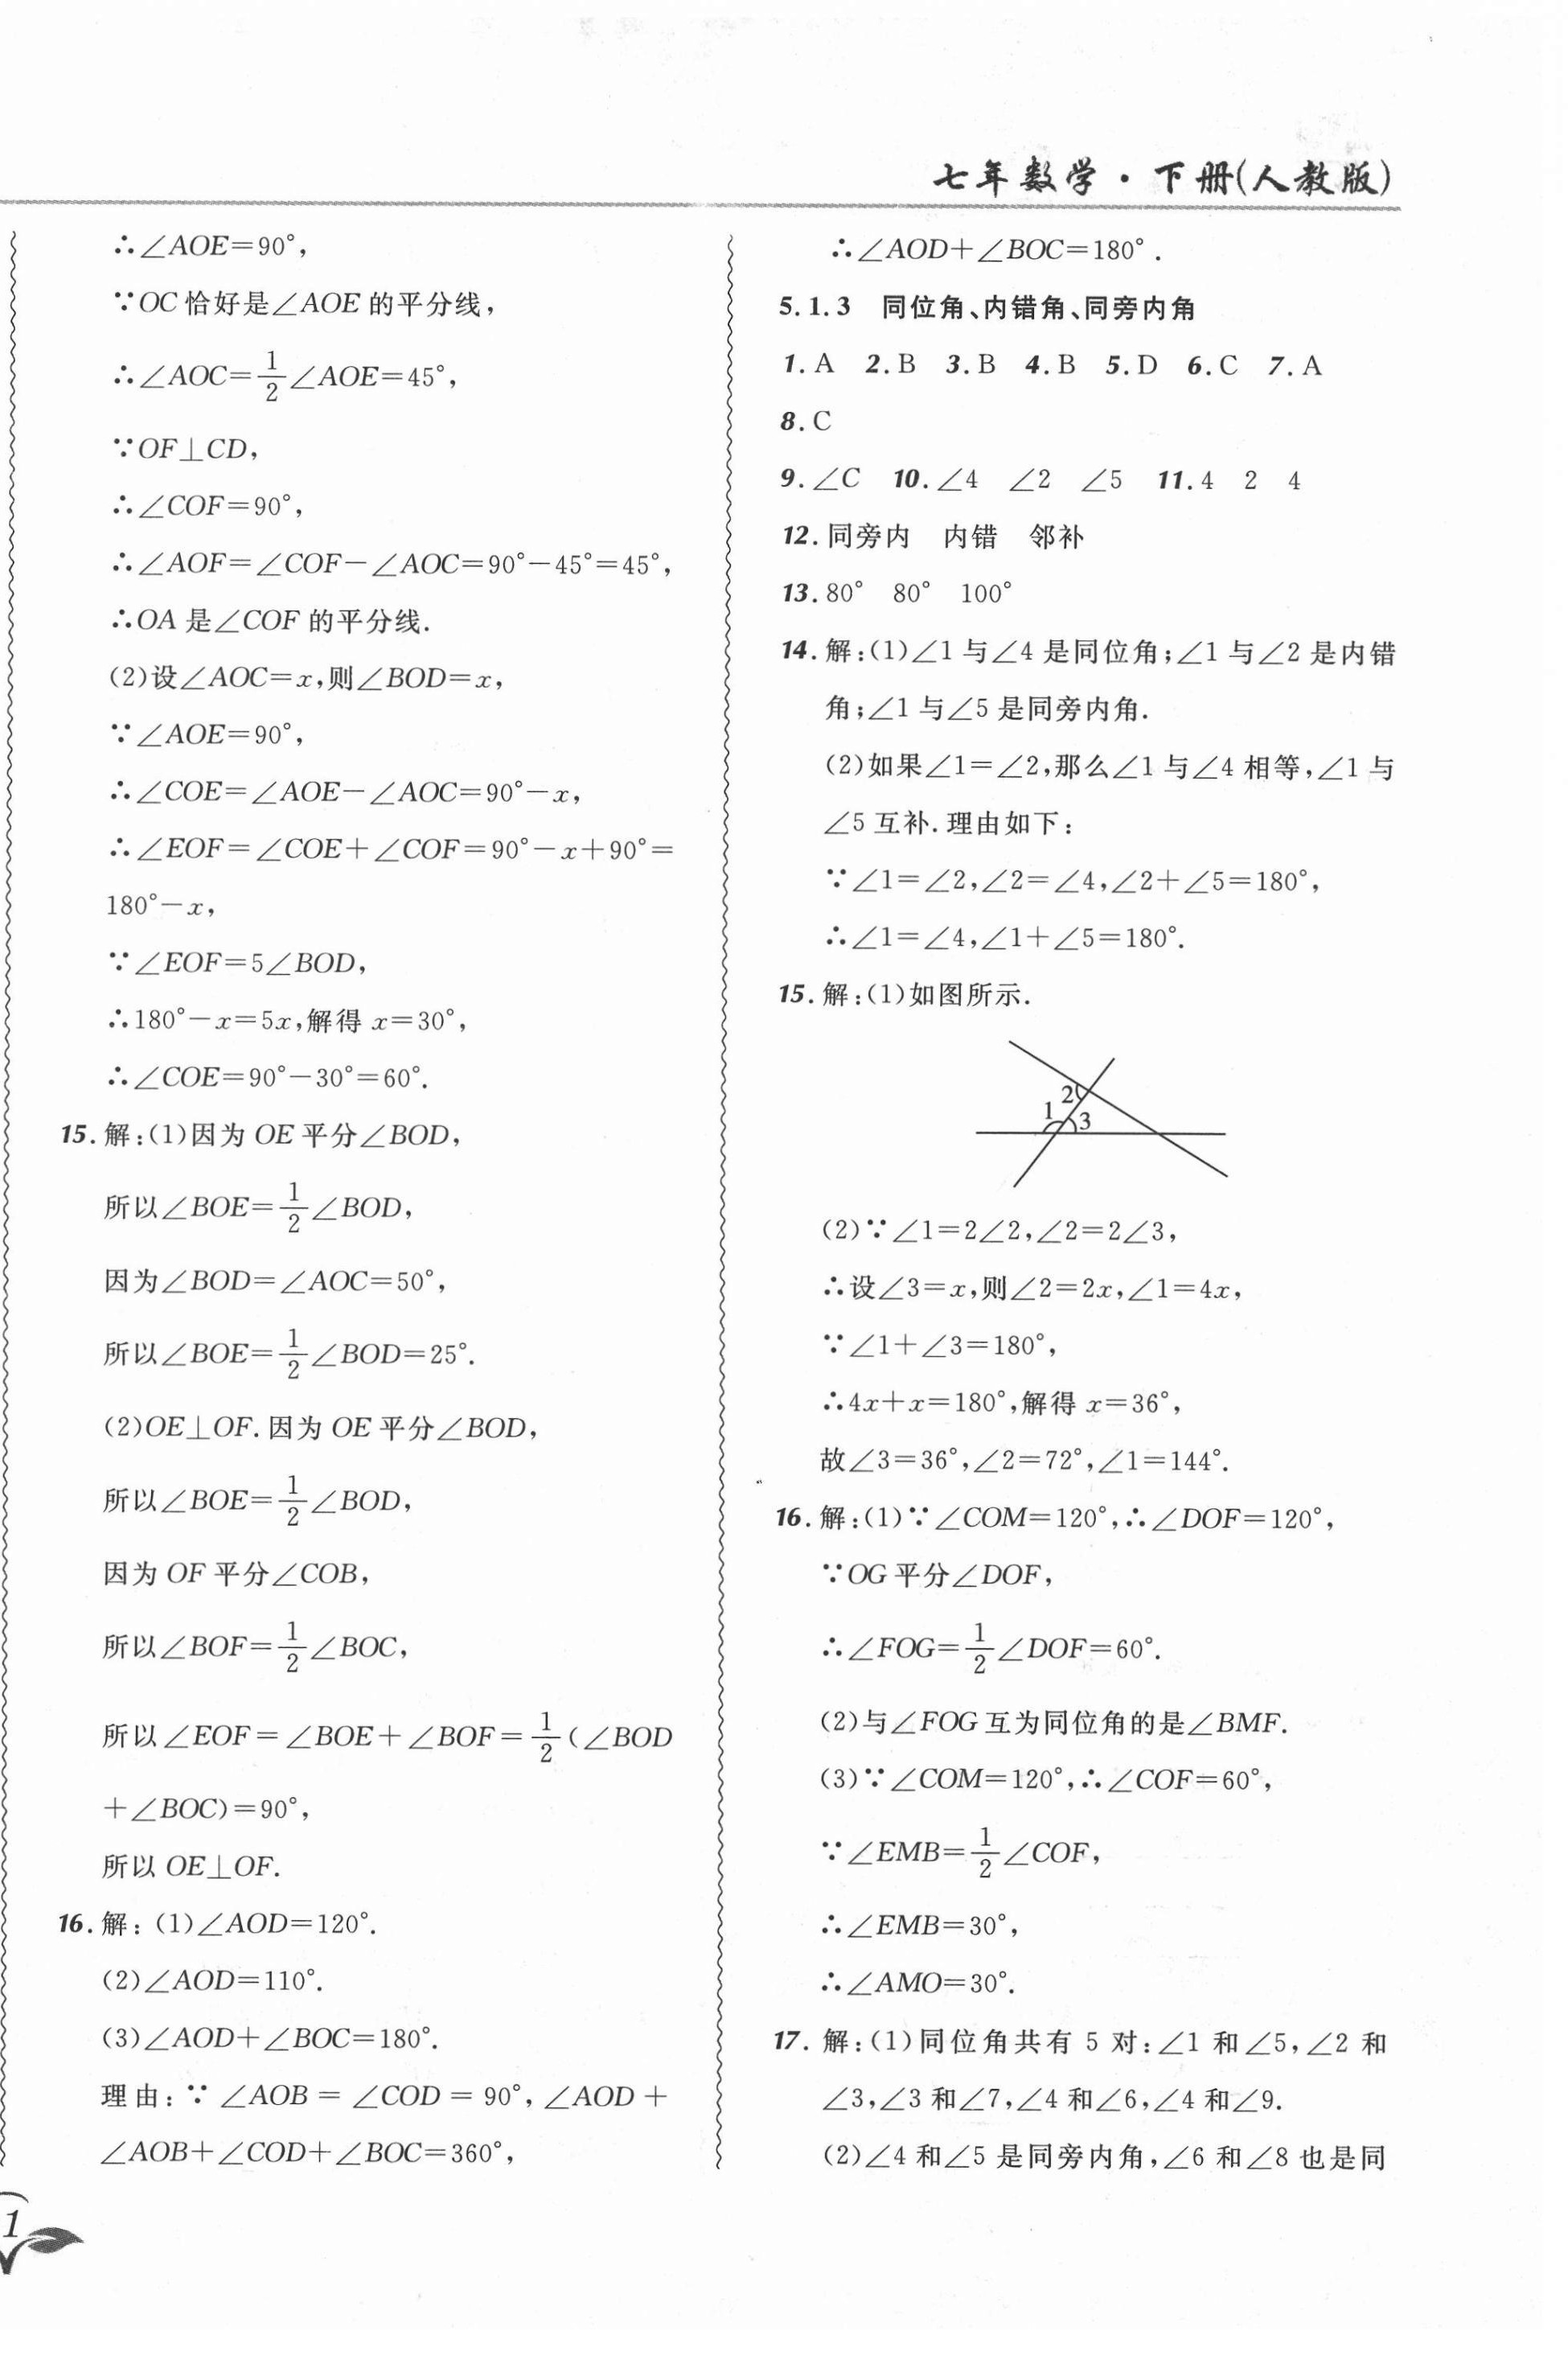 七年数学·下册(人教版)
∴∠AOE=90°,
∵OC恰好是∠AOE的平分线,
∴∠AOC=1/2∠AOE=45°,
∵OF⊥CD,
∴∠COF=90°,
∴∠AOF=∠COF-∠AOC=90°-45°=45°,
∴OA是∠COF的平分线.
(2)设∠AOC=x,则∠BOD=x,
∵∠AOE=90°,
∴∠COE=∠AOE-∠AOC=90°-x,
∴∠EOF=∠COE+∠COF=90°-x+90°=
180°-x,
∵∠EOF=5∠BOD,
∴180°-x=5x,解得x=30°,
∴∠COE=90°-30°=60°.
15.解:(1)因为OE平分∠BOD,
所以∠BOE=1/2∠BOD,
因为∠BOD=∠AOC=50°,
所以∠BOE=1/2∠BOD=25°.
(2)OE⊥OF.因为OE平分∠BOD,
所以∠BOE=1/2∠BOD,
因为OF平分∠COB,
所以∠BOF=1/2∠BOC,
所以∠EOF=∠BOE+∠BOF=1/2(∠BOD
+∠BOC)=90°,
所以OE⊥OF.
16.解:(1)∠AOD=120°.
(2)∠AOD=110°.
(3)∠AOD+∠BOC=180°.
理由:∵∠AOB=∠COD=90°,∠AOD+
∠AOB+∠COD+∠BOC=360°,
1
∴∠AOD+∠BOC=180°.
5.1.3 同位角、内错角、同旁内角
1.A 2.B 3.B 4.B 5.D 6.C 7.A
8.C
9.∠C 10.∠4 ∠2 ∠5 11.4 2 4
12.同旁内 内错 邻补
13.80° 80° 100°
14.解:(1)∠1与∠4是同位角;∠1与∠2是内错
角;∠1与∠5是同旁内角.
(2)如果∠1=∠2,那么∠1与∠4相等,∠1与
∠5互补.理由如下:
∵∠1=∠2,∠2=∠4,∠2+∠5=180°,
∴∠1=∠4,∠1+∠5=180°.
15.解:(1)如图所示.
2
1 3
(2)∵∠1=2∠2,∠2=2∠3,
∴设∠3=x,则∠2=2x,∠1=4x,
∵∠1+∠3=180°,
∴4x+x=180°,解得x=36°,
故∠3=36°,∠2=72°,∠1=144°.
16.解:(1)∵∠COM=120°,∴∠DOF=120°,
∵OG平分∠DOF,
∴∠FOG=1/2∠DOF=60°.
(2)与∠FOG互为同位角的是∠BMF.
(3)∵∠COM=120°,∴∠COF=60°,
∵∠EMB=1/2∠COF,
∴∠EMB=30°,
∴∠AMO=30°.
17.解:(1)同位角共有5对:∠1和∠5,∠2和
∠3,∠3和∠7,∠4和∠6,∠4和∠9.
(2)∠4和∠5是同旁内角,∠6和∠8也是同